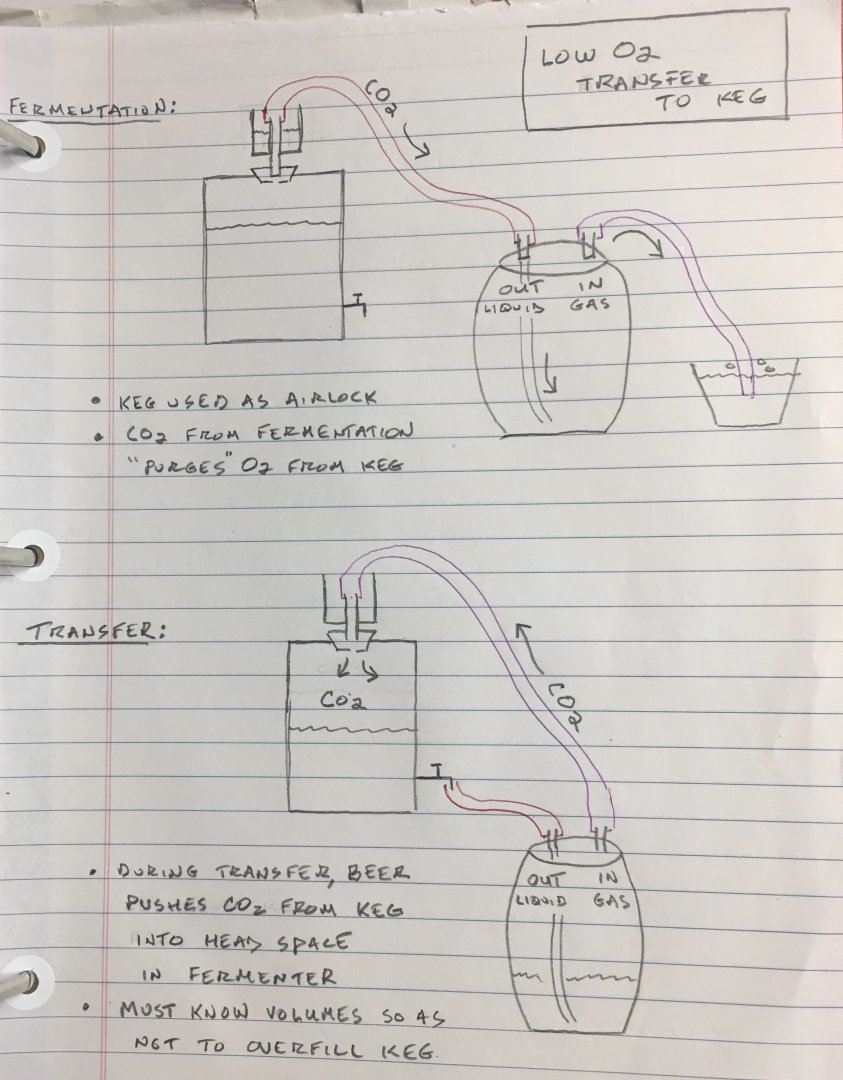 LOW O2
TRANSFER
TO KEG
FERMENTATION:
CO2
OUT IN
LIQUID GAS
• KEG USED AS AIRLOCK
• CO2 FROM FERMENTATION
"PURGES" O2 FROM KEG
TRANSFER:
CO2
CO2
OUT IN
LIQUID GAS
• DURING TRANSFER, BEER
PUSHES CO2 FROM KEG
INTO HEAD SPACE
IN FERMENTER
• MUST KNOW VOLUMES SO AS
NOT TO OVERFILL KEG.